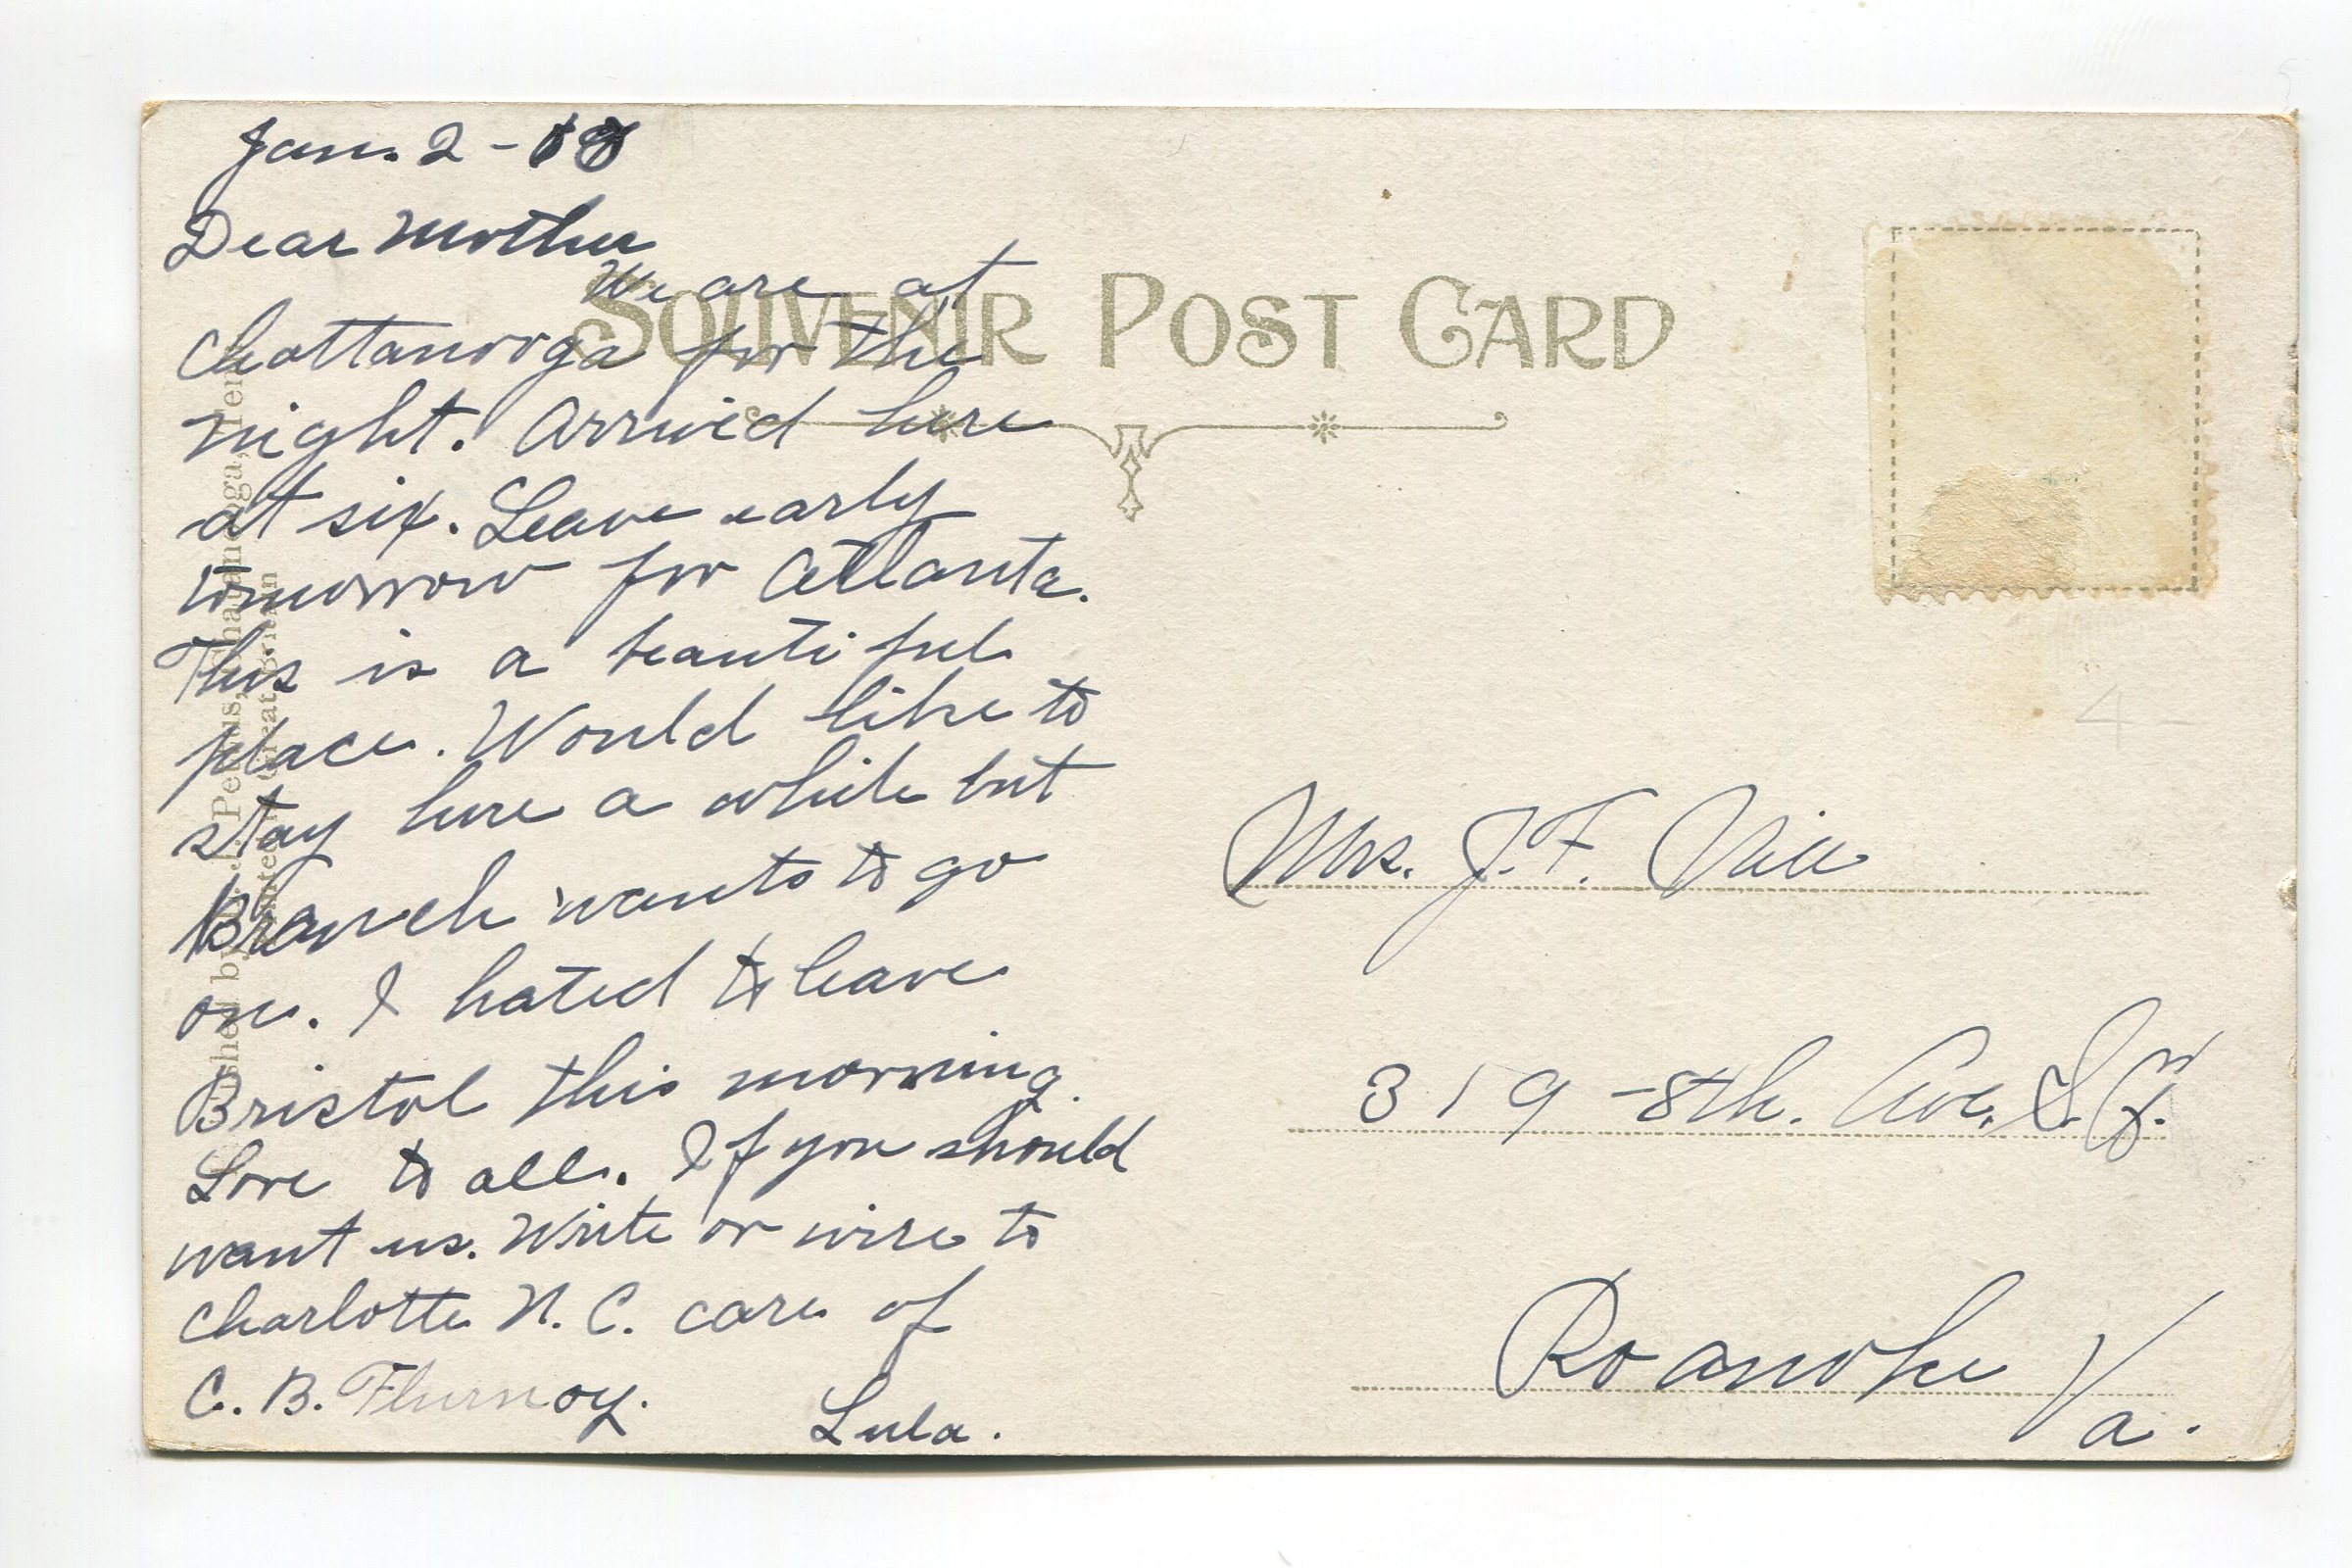 Jan. 2 -
Dear Mother
We are at
Chattanooga for the
night. Arrived here
at six. Leave early
tomorrow for Atlanta.
This is a beautiful
place. Would like to
stay here a while but
Branch wants to go
on. I hated to leave
Bristol this morning.
Love to all. If you should
want us. Write or wire to
Charlotte N. C. care of
C. B. Flurnoy.
Lula.
SOUVENIR POST CARD
Mrs. J. F.
319 - 8th. Ave. S.
Roanoke Va.